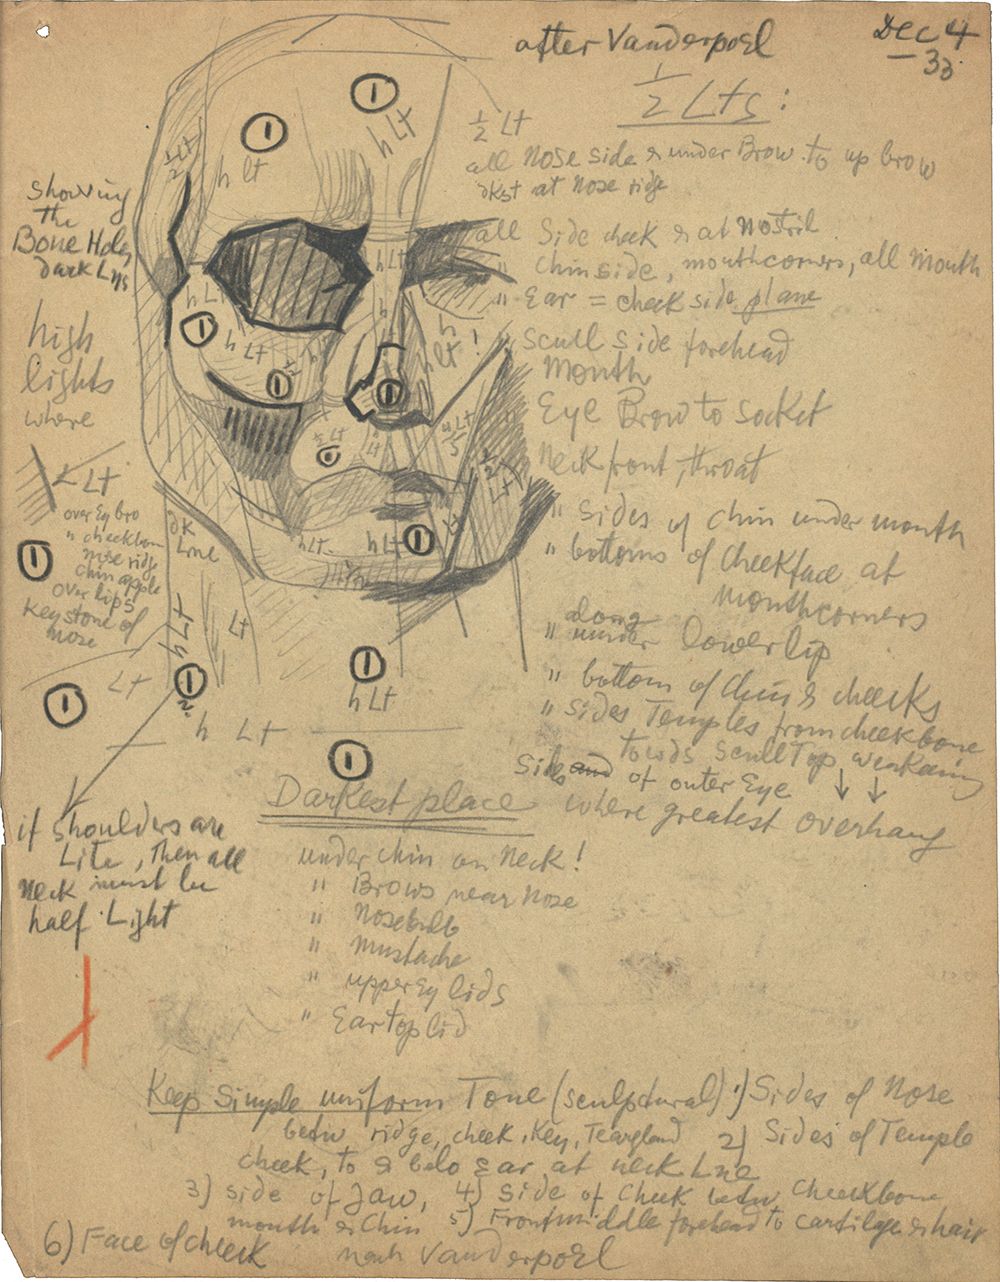 after Vanderpoel
Dec 4
— 33
1/2 Lts :
1/2 Lt
all Nose side & under Brow to up brow
dkst at Nose ridge
all Side cheek & at Nostril
" chin side, mouthcorners, all Mouth
" Ear = cheek side plane
" scull side forehead
Mouth
" Eye Brow to Socket
Neck front, throat
" Sides of chin under mouth
" bottoms of Cheekface at
mouthcorners
along
" under lowerlip
" bottom of Chin & cheeks
" sides Temples from cheekbone
towds Scull Top weakening
Sides and of outer Eye
where greatest overhang
Showing
the
Bone Holes
dark Lns
high
lights
where
Lt
over Ey bro
" cheekbon
nose ridge
chin apple
over lips
Keystone of
nose
1
1
1
h Lt
h lt
1/2 Lt
h Lt
h Lt
h Lt
1
1/2
1
1
h
h
h Lt
1/2 Lt
1/2 Lt
Lt
h Lt
h Lt
1
dK
Line
Lt
Lt
1
2.
1
h Lt
1
h Lt
1
if shoulders are
Lite, then all
Neck must be
half Light
Darkest place
under chin on Neck!
" Brows near Nose
" Nosebulb
" mustache
" upper Ey lids
" Ear top lid
Keep Simple uniform Tone (sculptural) 1) Sides of Nose
betw ridge, cheek, Key, Teargland 2) Sides of Temple
cheek, to & belo Ear at neck Lne
3) side of Jaw, 4) Side of Cheek betw cheekbone
mouth & Chin 5) Front middle forehead to cartilage & hair
6) Face of cheek nach Vanderpoel